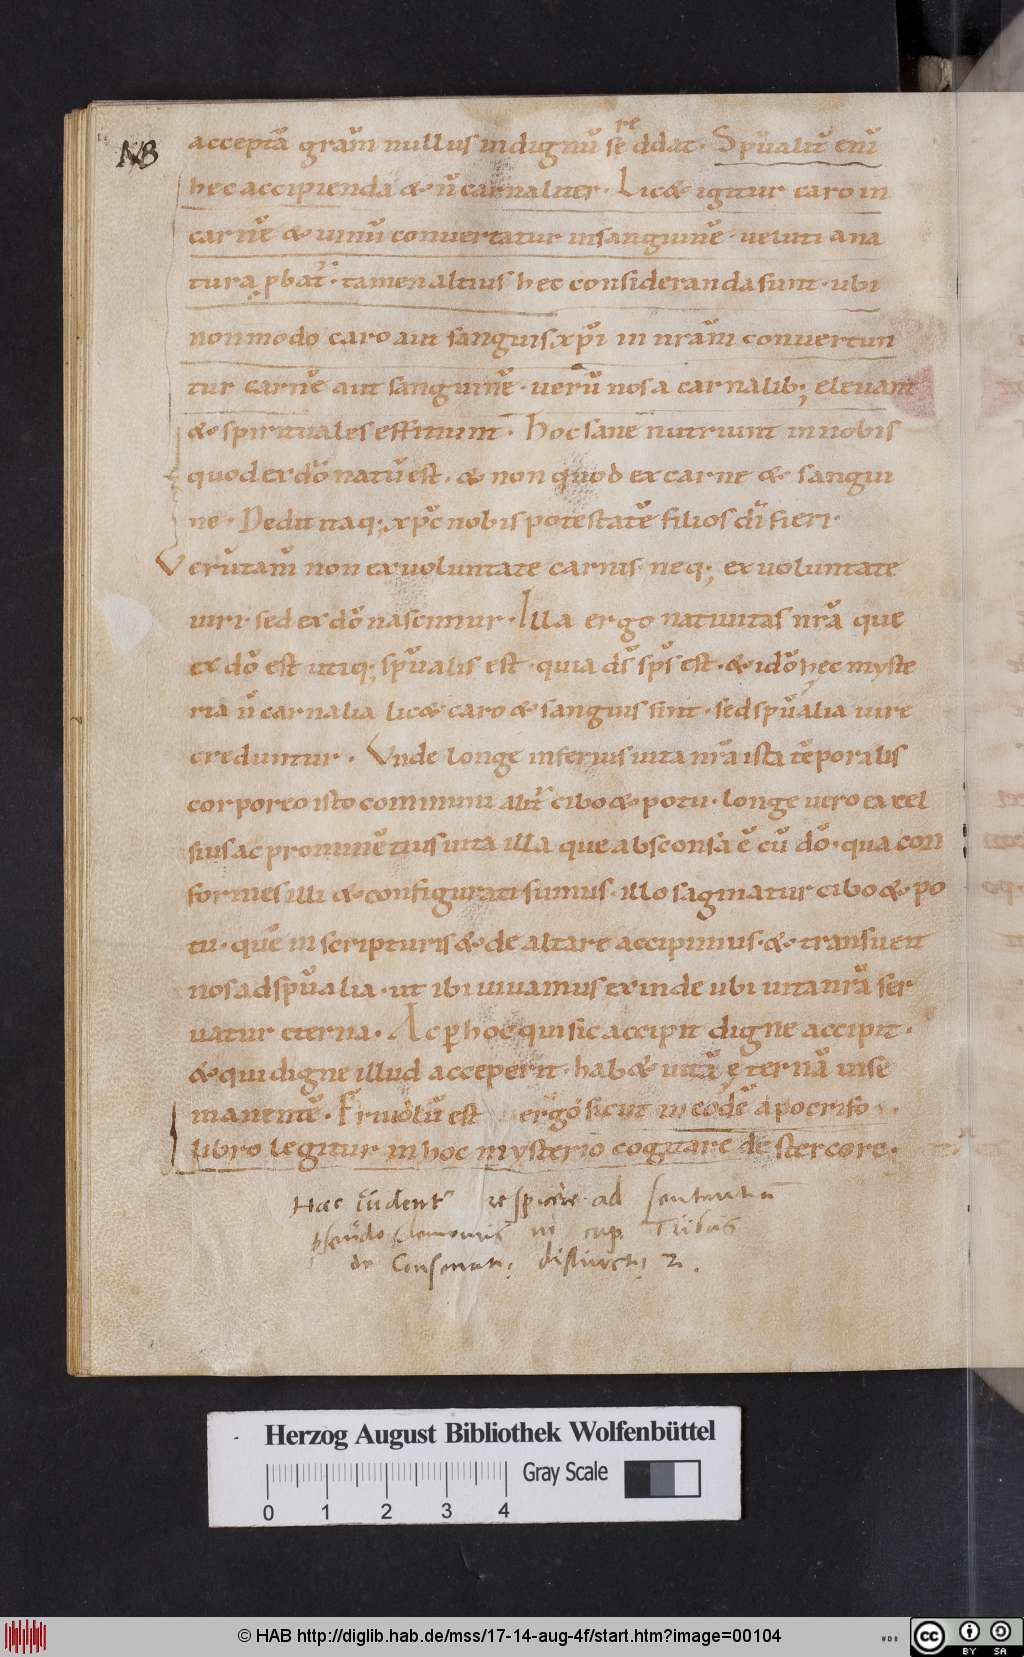 NB
acceptā grām nullus indignū se reddat. Spūalit̄ enī
hec accipienda & ñ carnaliter. Lic& igitur caro in
carnē & uinū conuertatur insanguinē. ueluti ana
tura pbat̄. tamen altius hec consideranda sunt. ubi
nonmodo caro aut sanguis xp̄i in nrām conuertun
tur carnē aut sanguinē. uerū nos a carnalib; eleuant
& spirituales efficiunt. Hoc sane nutriunt in nobis
quod ex dō natū est. & non quod ex carne & sangui
ne. Dedit naq; xp̄c nobis potestatē filios dī fieri.
Verūtam̄ non ex uoluntate carnis neq; ex uoluntate
uiri. sed ex dō nascimur. Illa ergo natiuitas nrā que
ex dō est utiq; spūalis est. quia ds̄ sps̄ est. & idō hec myste
ria ñ carnalia lic& caro & sanguis sint. sed spūalia iure
creduntur. Vnde longe inferius uita nrā ista tēporalis
corporeo isto communi alit̄ cibo & potu. longe uero excel
sius ac prominētius uita illa que absconsa ē cū dō. qua con
formes illi & configurati sumus. illo saginatur cibo & po
tu. quē in scripturis & de altare accipimus. & transuert
nos ad spūalia. ut ibi uiuamus exinde ubi uita nrā ser
uatur eterna. Ac p hoc qui sic accipit digne accipit.
& qui digne illud acceperit. hab& uitā eternā in se
manentē. Friuolū est ergo sicut in eodē apocrifo
libro legitur in hoc mysterio cogitare de stercore.
Hæc respicere ad sententiā
pseudo Clementis in cap. Tribus
de Consecrat: distinct: 2.
Herzog August Bibliothek Wolfenbüttel
0 1 2 3 4 Gray Scale
© HAB http://diglib.hab.de/mss/17-14-aug-4f/start.htm?image=00104
WDB
cc BY SA